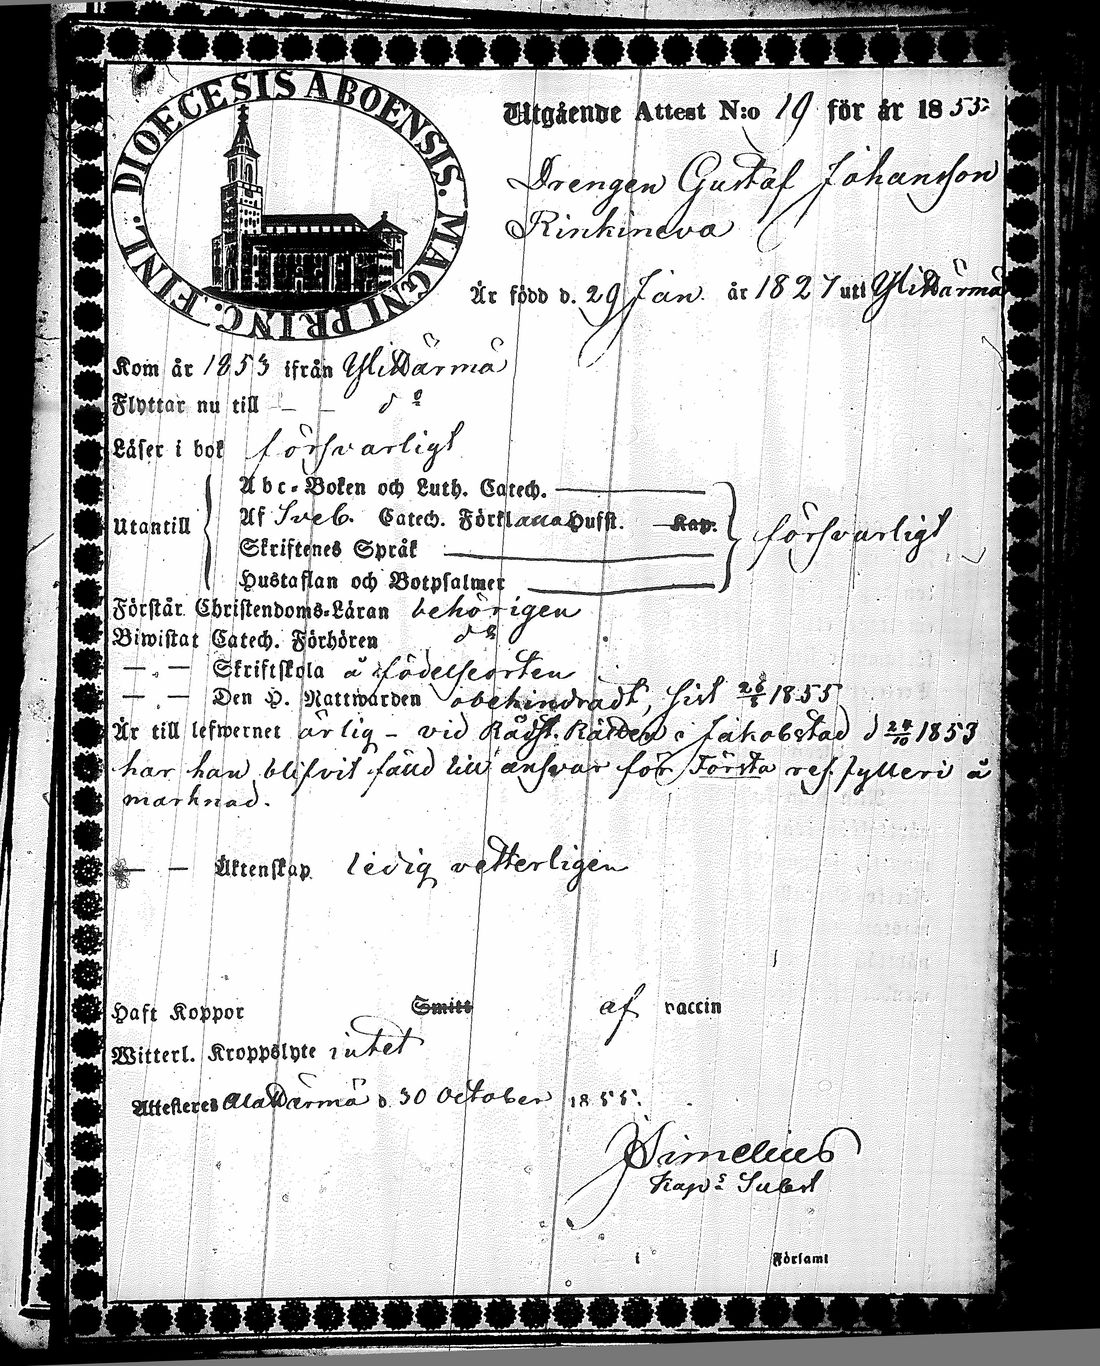 DIOECESIS ABOENSIS. MAGNI PRINC. FINL.
Utgående Attest N:o 19 för år 1855.
Drengen Gustaf Johansson
Rinkineva
Är född d. 29 Jan. år 1827 uti YliHärmä
Kom år 1853 ifrån YliHärmä
Flyttar nu till — — do
Läser i bok försvarligt
Utantill
Abc-Boken och Luth. Catech.
Af Sveb. Catech. Förklaring Husst. Kap.
Skriftenes Språk
Hustaflan och Botpsalmer
försvarligt
Förstår Christendoms-Läran behörigen
Biwistat Catech. Förhören do
— — Skriftskola å födelseorten
— — Den H. Nattwarden obehindradt, sist 26/8 1855
Är till lefwernet ärlig - vid Rådst. Rätten i Jakobstad d 24/10 1853
har han blifvit fälld till ansvar för Första res. fylleri å
marknad.
— — Äktenskap ledig vetterligen
Haft Koppor Smitt af vaccin
Witterl. Kroppslyte intet
Attesteres AlaHärmä d. 30 October 1855.
JSimelius
Kaps Subst
i Församl